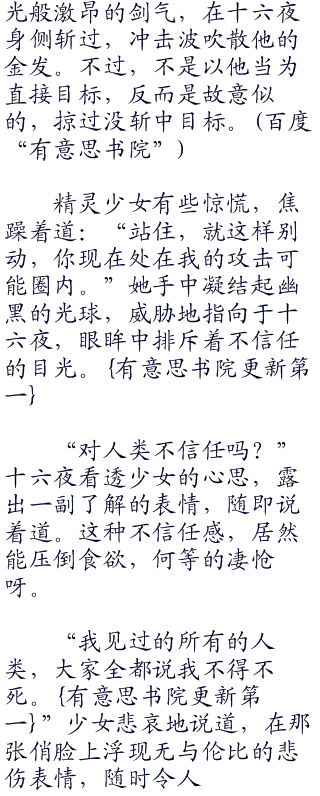 光般激昂的剑气，在十六夜
身侧斩过，冲击波吹散他的
金发。不过，不是以他当为
直接目标，反而是故意似
的，掠过没斩中目标。(百度
“有意思书院”)
精灵少女有些惊慌，焦
躁着道：“站住，就这样别
动，你现在处在我的攻击可
能圈内。”她手中凝结起幽
黑的光球，威胁地指向于十
六夜，眼眸中排斥着不信任
的目光。{有意思书院更新第
一}
“对人类不信任吗？”
十六夜看透少女的心思，露
出一副了解的表情，随即说
着道。这种不信任感，居然
能压倒食欲，何等的凄怆
呀。
“我见过的所有的人
类，大家全都说我不得不
死。{有意思书院更新第
一}”少女悲哀地说道，在那
张俏脸上浮现无与伦比的悲
伤表情，随时令人